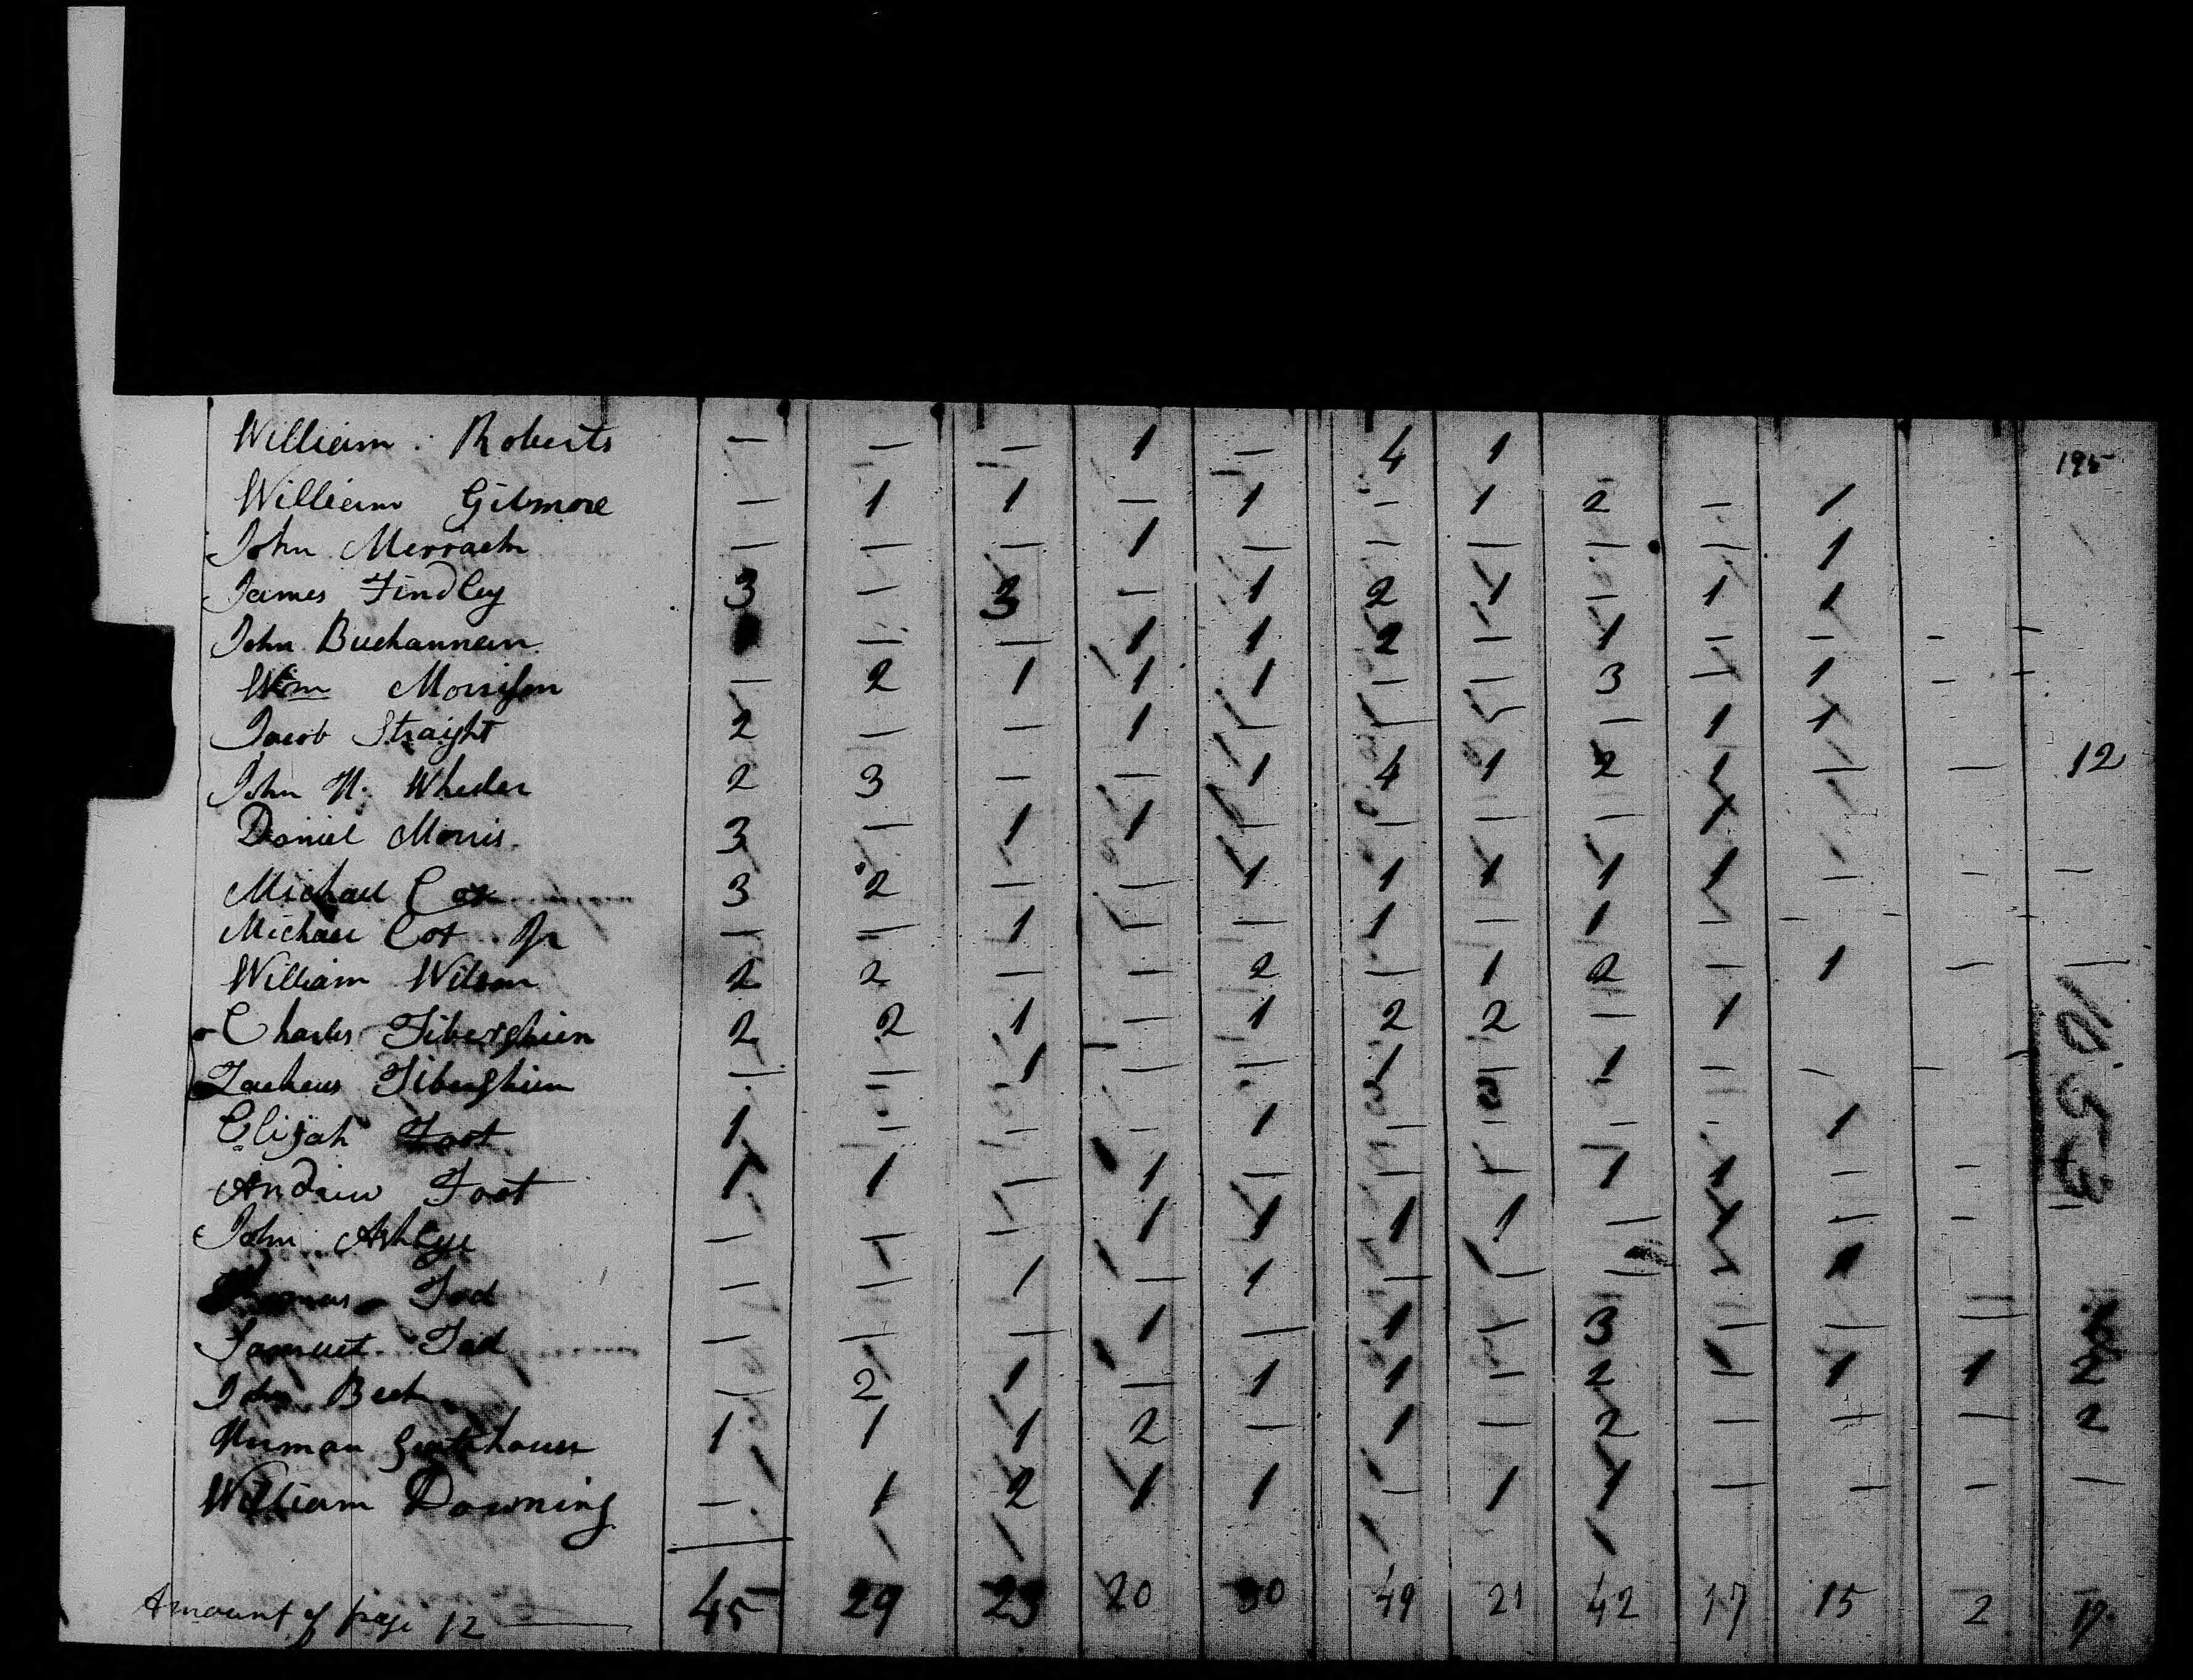 William Roberts — — — 1 — 4 1 195
William Gilmore — 1 1 — 1 — 1 2 — 1
John Merrach — — — 1 — — — — — 1
James Findley 3 — 3 — 1 2 1 — 1 1
John Buchannan — — 1 1 2 — 1 — — — —
Wm Morrison — 2 1 1 1 — — 3 — 1 — —
Jacob Straight 2 — — 1 — — — — 1 1
John N. Wheeler 2 3 — — 1 4 1 2 1 — — 12
Daniel Morris 3 — 1 1 — — — — 1
Michael Cox 3 2 — — 1 1 1 1 1 — — —
Michael Cox Jr — — 1 — — 1 — 1 — — — —
William Wilson 2 2 — — 2 — 1 2 — 1 — —
Charles Tiberghien 2 2 1 — 1 2 2 — 1
Zacheus Tiberghien — — 1 — — 1 — 1 — — — —
1053
Elijah Foot 1 — — — 1 — — — — 1
Andrew Foot 1 1 — 1 — — — 1 1 — —
John Ashlye — — — 1 1 1 1 — 1 — — —
Tod — — 1 — 1 — — —
Samuel Tod — — — 1 — 1 — 3 — — —
John Beck — 2 1 — 1 1 — 2 — 1 1 2
Herman 1 1 1 2 — 1 — 2 — — — 2
William Downing — 1 2 1 1 — 1 1 — — — —
Amount of page 12 — 45 29 23 20 30 49 21 42 17 15 2 17